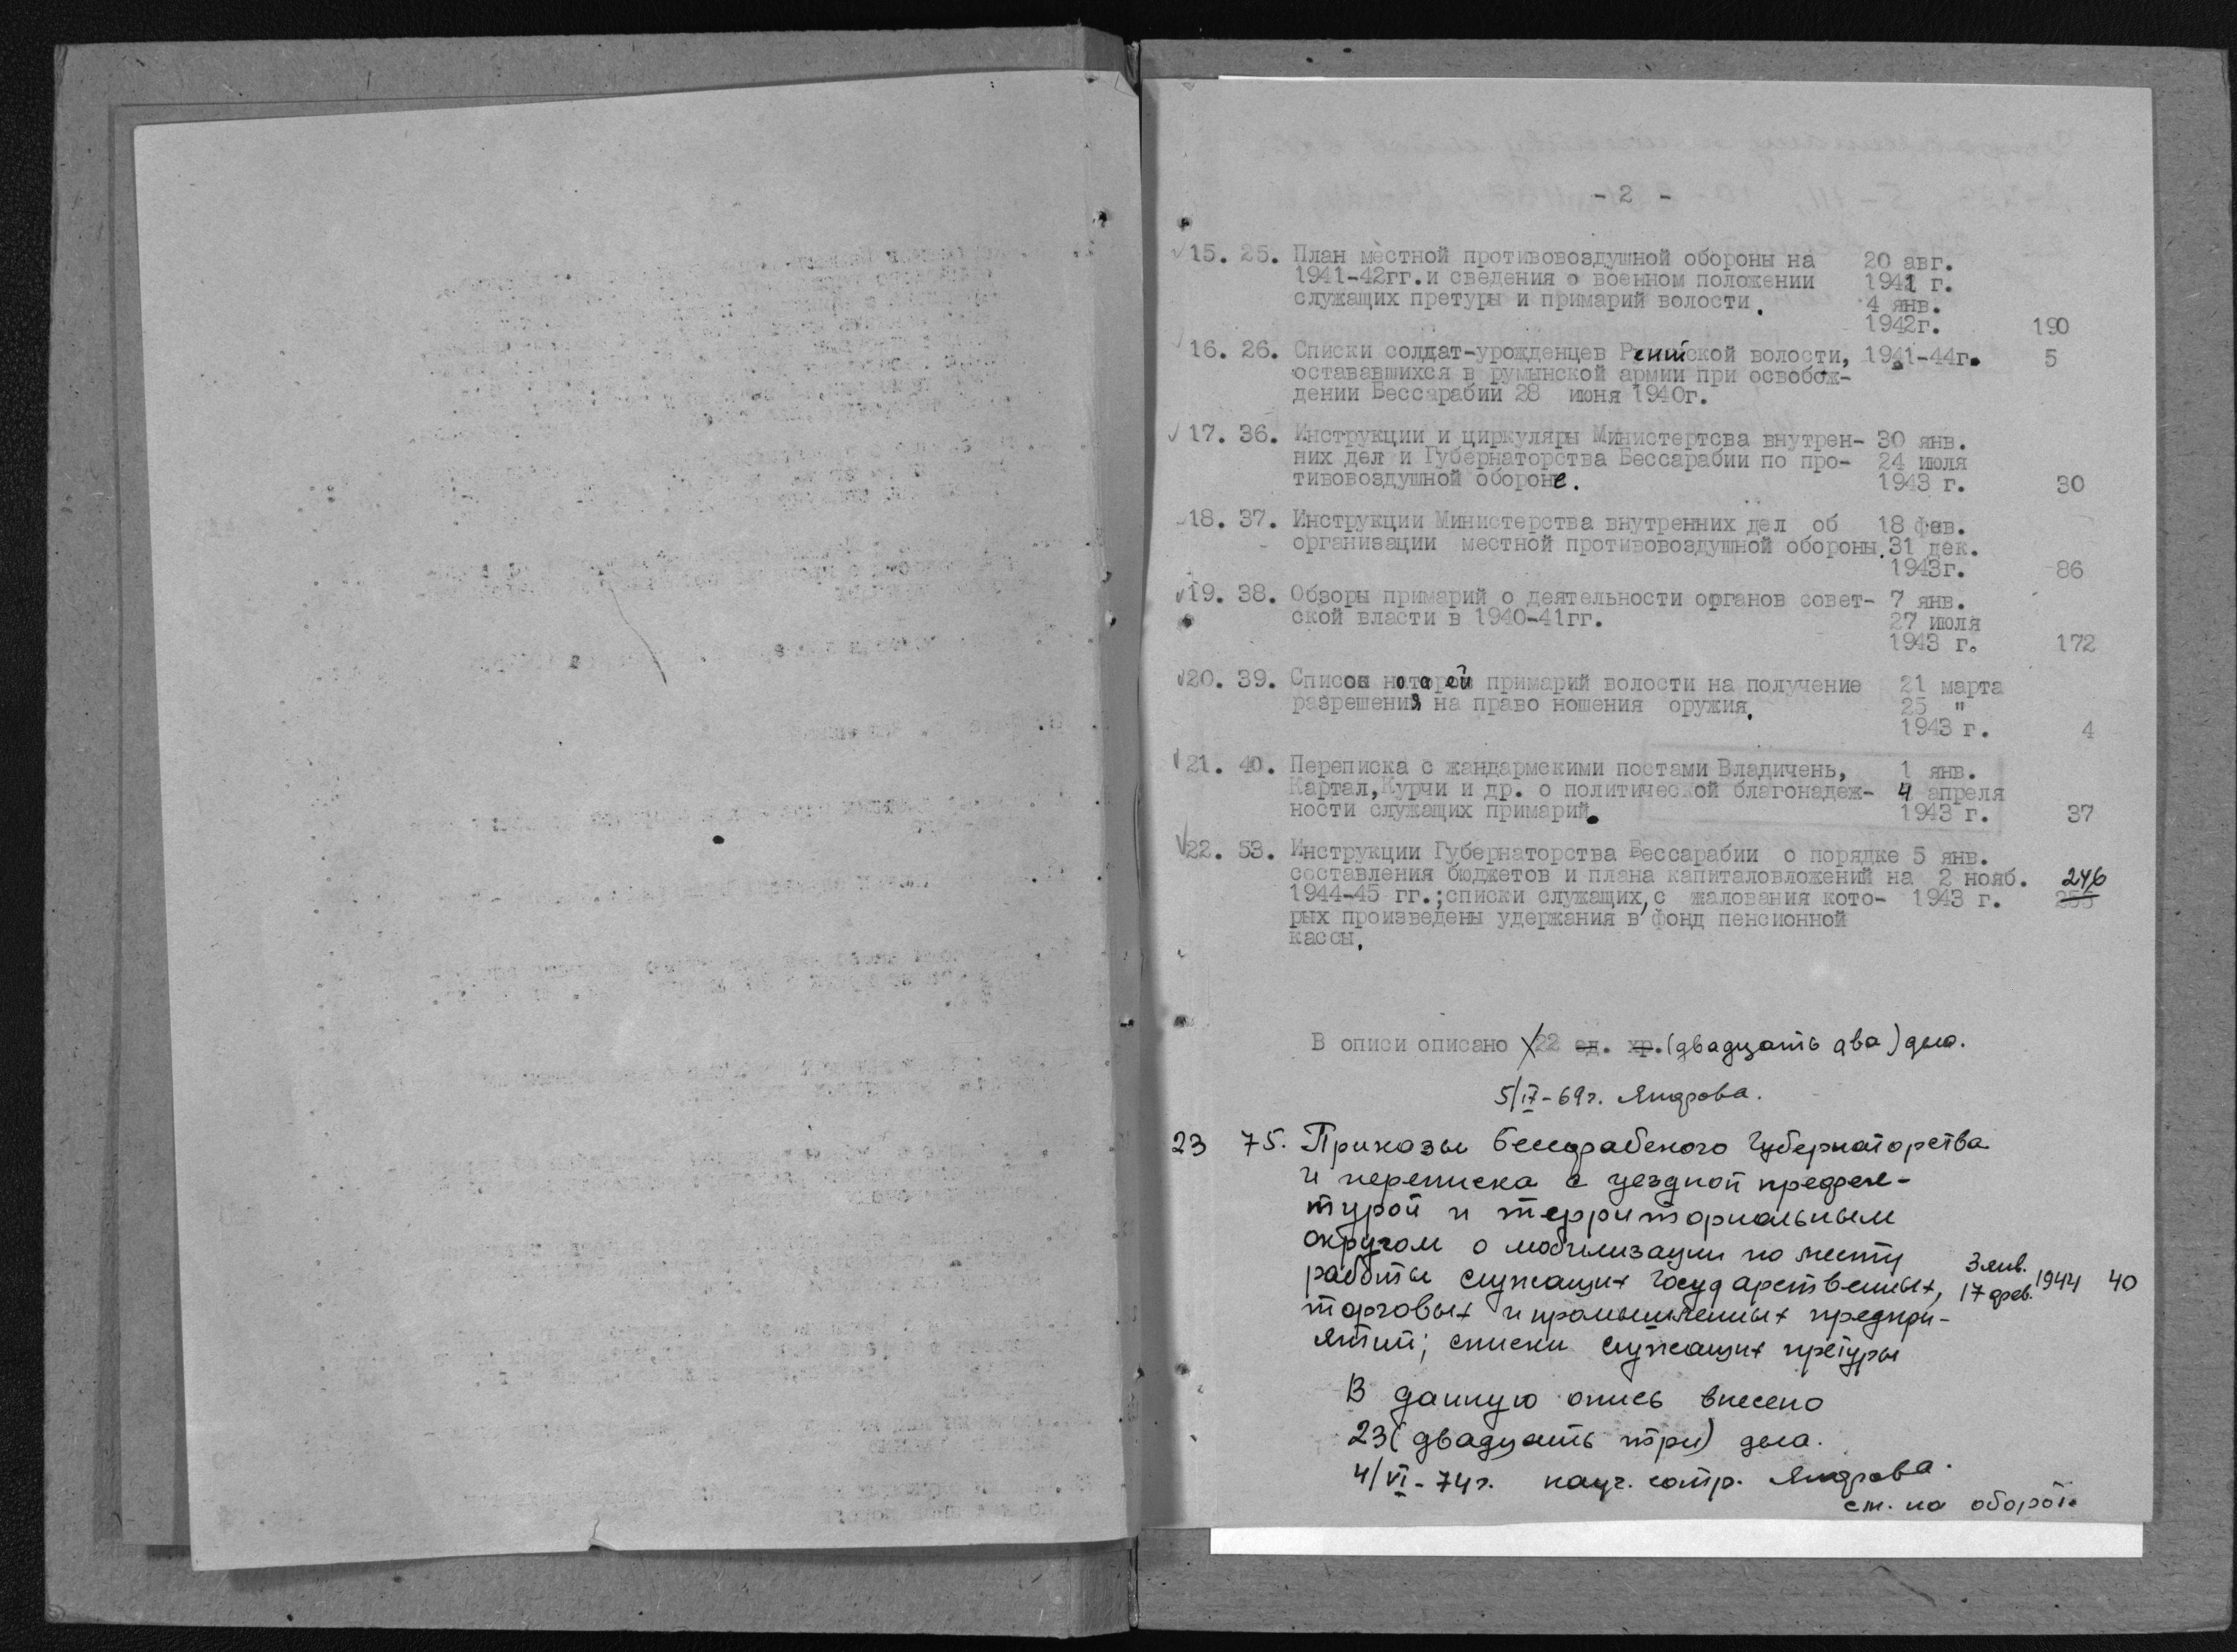 - 2 -
15. 25. План местной противовоздушной обороны на 20 авг.
1941-42гг.и сведения о военном положении 1941 г.
служащих претуры и примарий волости. 4 янв.
1942г. 190
16. 26. Списки солдат-урожденцев Ренийской волости, 1941-44г. 5
остававшихся в румынской армии при освобож-
дении Бессарабии 28 июня 1940г.
17. 36. Инструкции и циркуляры Министертсва внутрен- 30 янв.
них дел и Губернаторства Бессарабии по про- 24 июля
тивовоздушной обороне. 1943 г. 30
18. 37. Инструкции Министерства внутренних дел об 18 фев.
организации местной противовоздушной обороны. 31 дек.
1943г. 86
19. 38. Обзоры примарий о деятельности органов совет- 7 янв.
ской власти в 1940-41гг. 27 июля
1943 г. 172
20. 39. Список примарий волости на получение 21 марта
разрешения на право ношения оружия. 25 "
1943 г. 4
21. 40. Переписка с жандармскими постами Владичень, 1 янв.
Картал, Курчи и др. о политической благонадеж- 4 апреля
ности служащих примарий. 1943 г. 37
22. 53. Инструкции Губернаторства Бессарабии о порядке 5 янв.
составления бюджетов и плана капиталовложений на 2 нояб. 246
1944-45 гг.;списки служащих, с жалования кото- 1943 г. 255
рых произведены удержания в фонд пенсионной
кассы.
В описи описано 22 ед. хр. (двадцать два) дела.
5/IV-69г.
23 75. Приказы Бессарабского Губернаторства
и переписка с уездной префек-
турой и территориальным
округом о мобилизации по месту
работы служащих государственных, 3 янв. 17 фев. 1944 40
торговых и промышленных предпри-
ятий; списки служащих претуры
В данную опись внесено
23 (двадцать три) дела.
4/VI-74г. науч. сотр.
см. на обороте